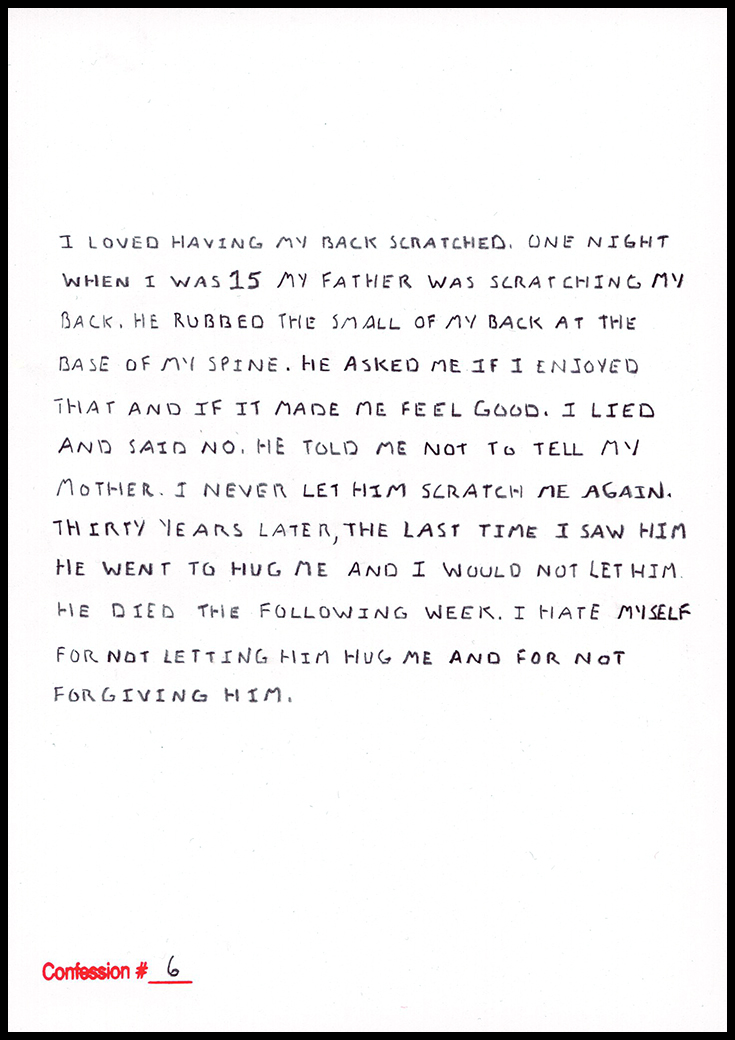 I LOVED HAVING MY BACK SCRATCHED. ONE NIGHT
WHEN I WAS 15 MY FATHER WAS SCRATCHING MY
BACK. HE RUBBED THE SMALL OF MY BACK AT THE
BASE OF MY SPINE. HE ASKED ME IF I ENJOYED
THAT AND IF IT MADE ME FEEL GOOD. I LIED
AND SAID NO. HE TOLD ME NOT TO TELL MY
MOTHER. I NEVER LET HIM SCRATCH ME AGAIN.
THIRTY YEARS LATER, THE LAST TIME I SAW HIM
HE WENT TO HUG ME AND I WOULD NOT LET HIM.
HE DIED THE FOLLOWING WEEK. I HATE MYSELF
FOR NOT LETTING HIM HUG ME AND FOR NOT
FORGIVING HIM.
Confession # 6